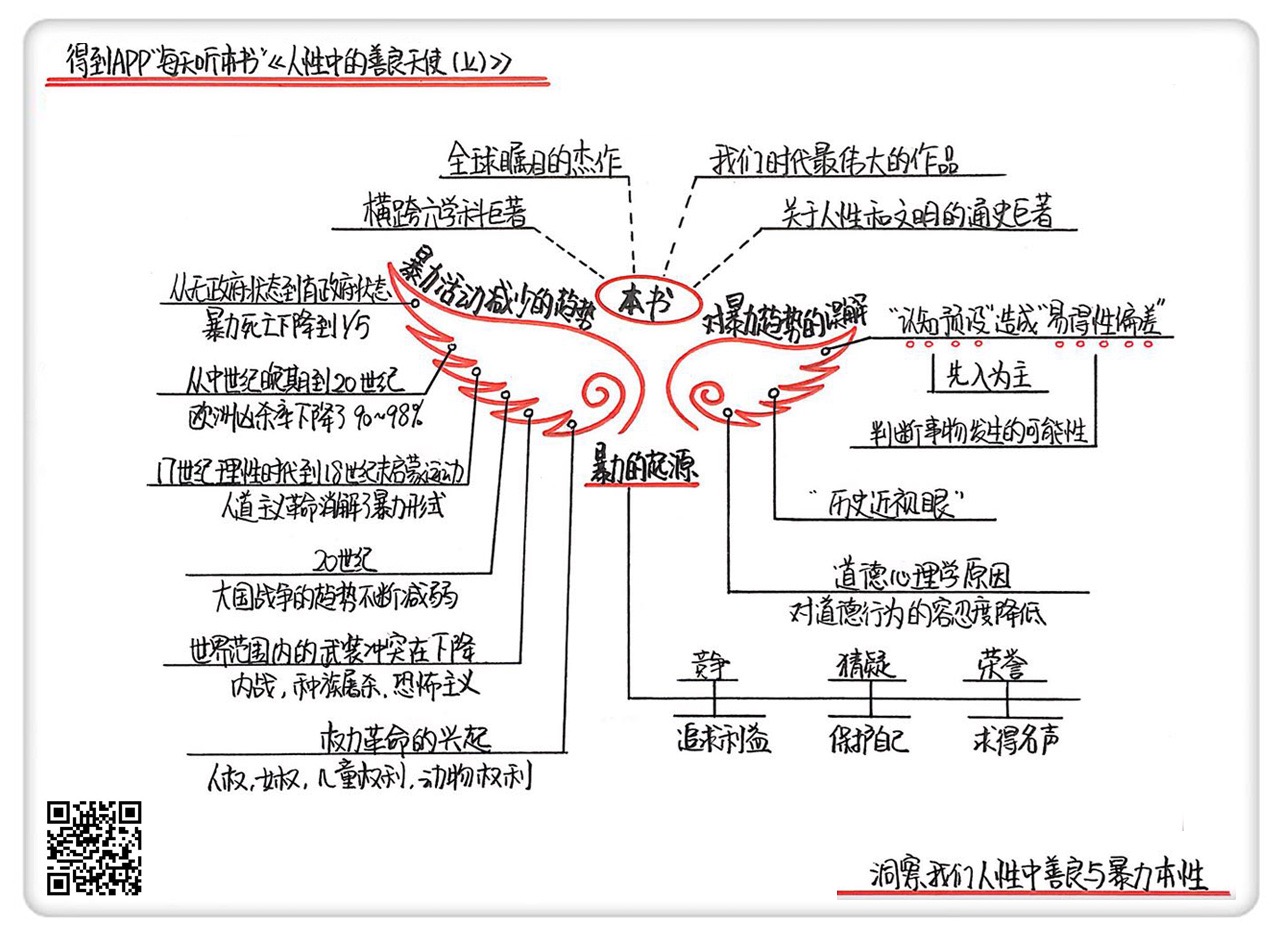 得到APP"每天听本书"《人性中的善良天使(上)》
全球瞩目的杰作
我们时代最伟大的作品
横跨六学科巨著
关于人性和文明的通史巨著
本书
暴力活动减少的趋势
从无政府状态到有政府状态
暴力死亡下降到1/5
从中世纪晚期到20世纪
欧洲凶杀率下降了90~98%
17世纪理性时代到18世纪末启蒙运动
人道主义革命消解了暴力形式
20世纪
大国战争的趋势不断减弱
世界范围内的武装冲突在下降
内战,种族屠杀,恐怖主义
权力革命的兴起
人权,女权,儿童权利,动物权利
对暴力趋势的误解
"认知预设"造成"易得性偏差"
先入为主
判断事物发生的可能性
"历史近视眼"
道德心理学原因
对道德行为的容忍度降低
暴力的起源
竞争
猜疑
荣誉
追求利益
保护自己
求得名声
洞察我们人性中善良与暴力本性